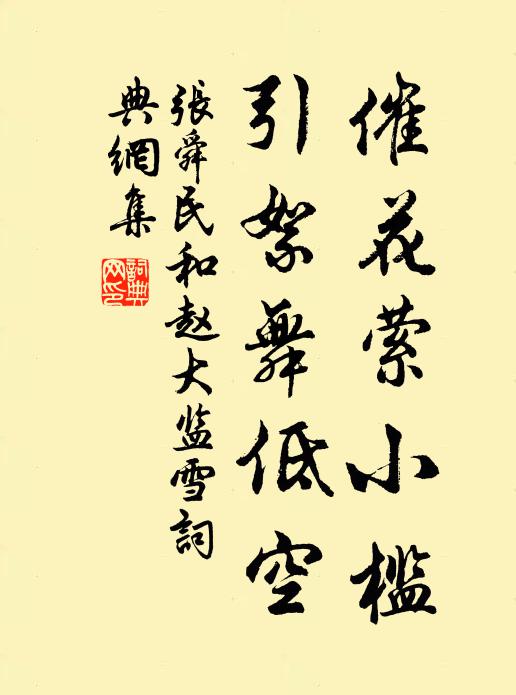 催花萦小槛
引絮舞低空
張舜民和赵大监雪詞
典網集
詞典网印